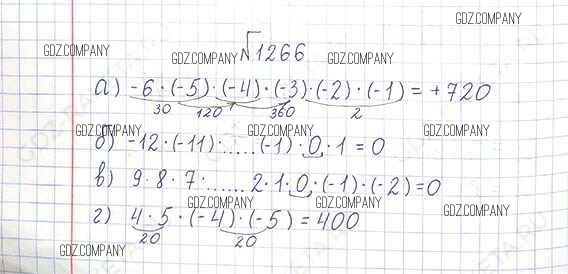 GDZ.COMPANY
№1266
GDZ.COMPANY GDZ.COMPANY GDZ.COMPANY
а) -6 · (-5) · (-4) · (-3) · (-2) · (-1) = +720
30 120 360 2
GDZ.COMPANY GDZ.COMPANY GDZ.COMPANY
б) -12 · (-11) · ...... (-1) · 0 · 1 = 0
в) 9 · 8 · 7 · ...... 2 · 1 · 0 · (-1) · (-2) = 0
GDZ.COMPANY GDZ.COMPANY GDZ.COMPANY
г) 4 · 5 · (-4) · (-5) = 400
20 20
GDZ.COMPANY